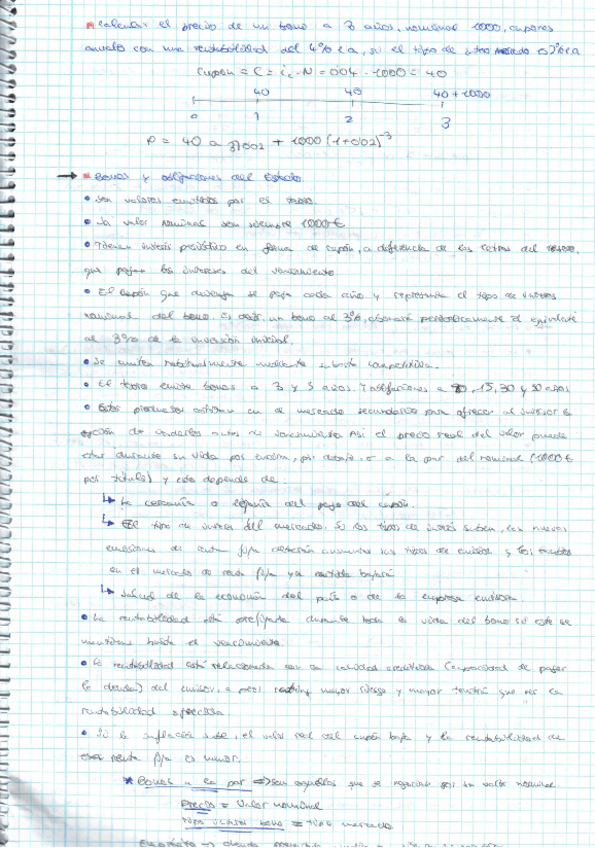 * Calcular el precio de un bono a 3 años, nominal 1000, cupones
anuales con una rentabilidad del 4% ea, si el tipo de mercado 02% ea
Cupón = C = ic · N = 0'04 · 1000 = 40
40 40 40+1000
0 1 2 3
P = 40 a 3|0'02 + 1000 (1+0'02)^-3
→ * Bonos y obligaciones del Estado
• Son valores emitidos por el tesoro.
• Su valor nominal son siempre 1000€
• Tienen interés periódico en forma de cupón, a diferencia de las letras del tesoro,
que pagan los intereses del vencimiento
• El cupón que devenga se paga cada año y representa el tipo de interés
nominal del bono. Es decir, un bono al 3%, abonará periódicamente el equivalente
al 3% de la inversión inicial.
• Se emiten habitualmente mediante subasta competitiva.
• El tesoro emite bonos a 3 y 5 años. Y obligaciones a 10, 15, 30 y 50 años
• Estos productos cotizan en el mercado secundario para ofrecer al inversor la
opción de venderlos antes de vencimiento. Así el precio real del valor puede
estar durante su vida por encima, por debajo o a la par del nominal (1000€
por título) y esto depende de:
↳ La cercanía o lejanía del pago del cupón.
↳ El tipo de interés del mercado. Si los tipos de interés suben, las nuevas
emisiones de renta fija deberán aumentar sus tipos de emisión y los
en el mercado de renta fija ya emitida bajará
↳ Salud de la economía del país o de la empresa emisora.
• La rentabilidad está prefijada durante toda la vida del bono si este se
mantiene hasta el vencimiento.
• La rentabilidad está relacionada con la calidad crediticia (capacidad de pagar
la deuda) del emisor, a peor rating mayor riesgo y mayor tendrá que ser la
rentabilidad ofrecida.
• Si la inflación sube, el valor real del cupón baja y la rentabilidad de
renta fija es menor.
* Bonos a la par ⇒ Son aquellos que se negocian por su valor nominal
Precio = Valor nominal
Tipo cupón bono = tipo mercado